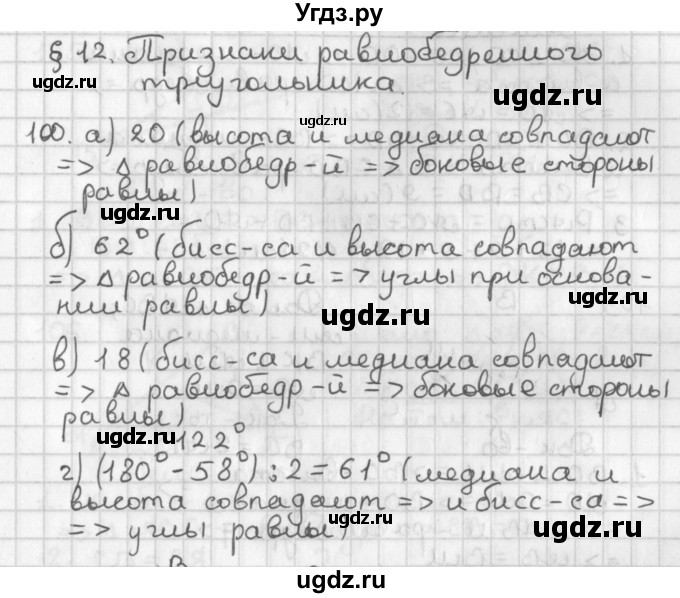 Угдз.ру
§ 12. Признаки равнобедренного
треугольника.
ugdz.ru
ugdz.ru
ugdz.ru
100. а) 20 (высота и медиана совпадают
=> Δ равнобедр-й => боковые стороны
равны)
ugdz.ru
ugdz.ru
б) 62° (бисс-са и высота совпадают
=> Δ равнобедр-й => углы при основа-
нии равны)
ugdz.ru
ugdz.ru
в) 18 (бисс-са и медиана совпадают
=> Δ равнобедр-й => боковые стороны
равны)
ugdz.ru
ugdz.ru
122°
г) (180° - 58°) : 2 = 61° (медиана и
высота совпадают => и бисс-са =>
=> углы равны)
ugdz.ru
ugdz.ru
ugdz.ru